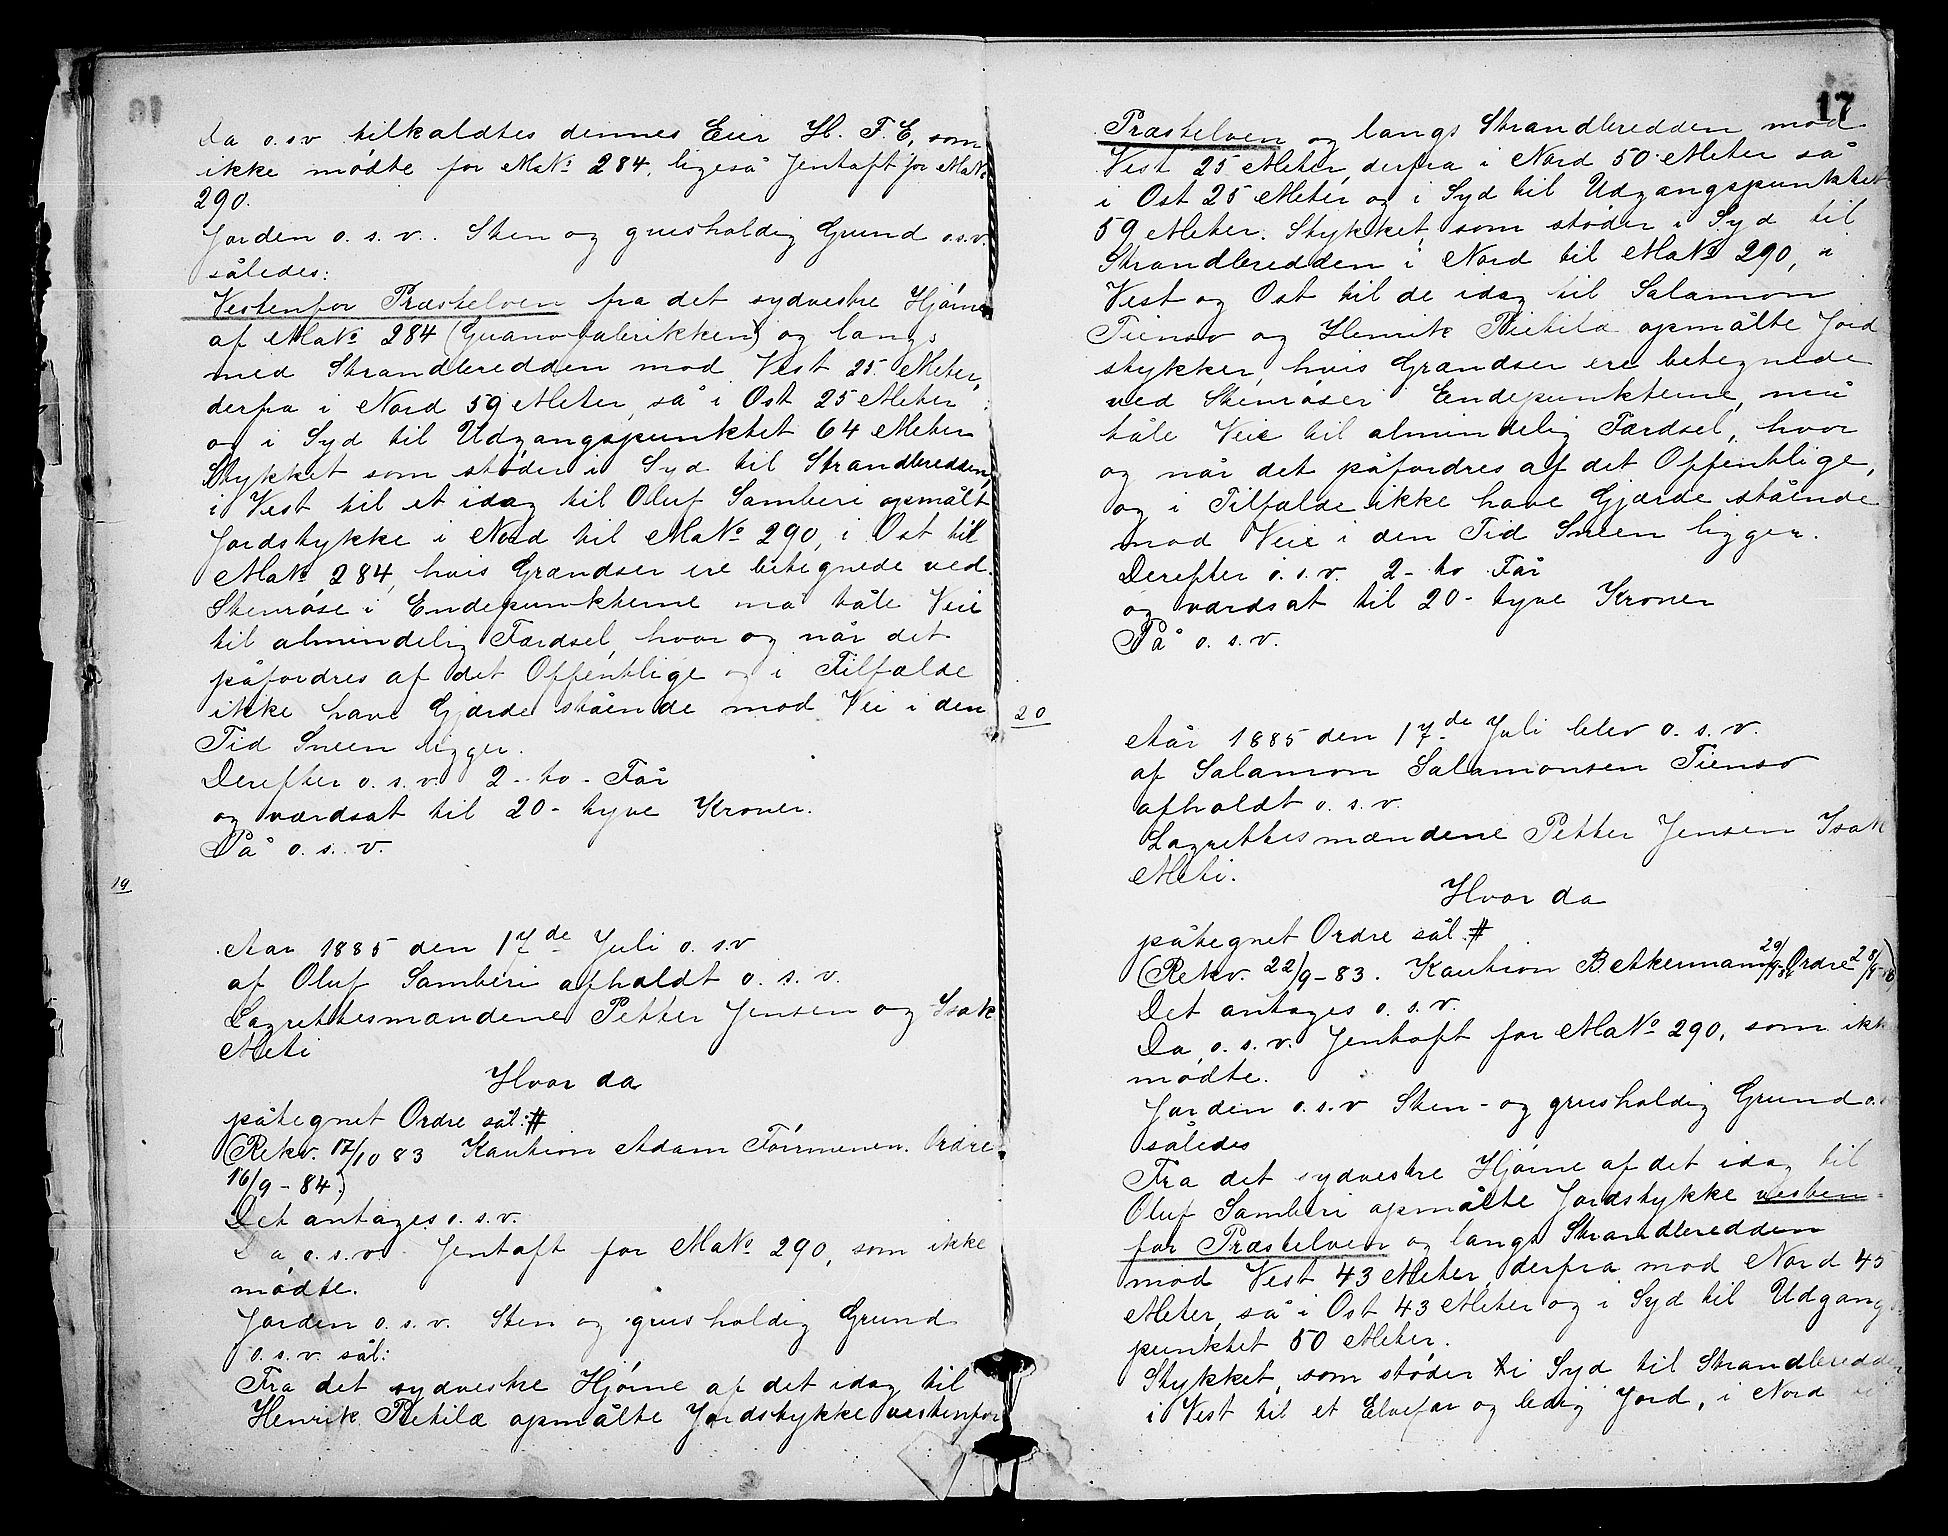 Da o.s.v tilkaldtes dennes Eier H. F. E, som
ikke mødte for MaNo 284, ligeså Jentoft for MaNo
290.
Jorden o. s. v. Sten og grusholdig Grund o.s.v.
således:
Vestenfor Præstelven fra det sydvestre Hjørne
af MaNo 284 (Guanofabrikken) og langs
med Strandbredden mod Vest 25 Meter,
derfra i Nord 59 Meter, så i Ost 25 Meter
og i Syd til Udgangspunktet 64 Meter
Stykket som støder i Syd til Strandbredden,
i Vest til et idag til Oluf Samberi opmålt
Jordstykke i Nord til MaNo 290, i Ost til
MaNo 284, hvis Grændser ere betegnede ved
Stenrøse i Endepunkterne må tåle Veie
til almindelig Færdsel, hvor og når det
påfordres af det Offentlige og i Tilfælde
ikke have Gjærde stående mod Vei i den
Tid Sneen ligger.
Derefter o. s. v. 2 - to - Får
og værdsat til 20 - tyve Kroner.
På o. s. v.
19
Aar 1885 den 17de Juli o. s.v
af Oluf Samberi afholdt o. s. v.
Lagrettesmændene Petter Jensen og Isak
Meti
Hvor da
påtegnet Ordre sål: #
(Rekv. 17/10 83 Kaution Adam Törmenen. Ordre
16/9 - 84)
Det antages o. s. v.
Da o. s. v. Jentoft for MaNo 290, som ikke
mødte.
Jorden o. s. v. Sten og grusholdig Grund
o. s. v. sål:
Fra det sydvestre Hjørne af det idag til
Henrik Pietilæ opmålte Jordstykke vestenfor
17
Præstelven og langs Strandbredden mod
Vest 25 Meter, derfra i Nord 50 Meter så
i Ost 25 Meter og i Syd til Udgangspunktet
59 Meter. Stykket, som støder i Syd til
Strandbredden i Nord til MaNo 290, i
Vest og Ost til de idag til Salamon
Tienso og Henrik Pietilæ opmålte Jord
stykker, hvis Grændser ere betegnede
ved Stenrøser i Endepunkterne, må
tåle Veie til almindelig Færdsel, hvor
og når det påfordres af det Offentlige,
og i Tilfælde ikke have Gjærde stående
mod Veie i den Tid Sneen ligger.
Derefter o. s. v. 2 - to Får
og værdsat til 20 - tyve Kroner
På o. s. v.
20
Aår 1885 den 17de Juli blev o. s. v.
af Salamon Salamonsen Tienso
afholdt o. s. v.
Lagrettesmændene Petter Jensen Isak
Meti.
Hvor da
påtegnet Ordre sål. #
(Rekv. 22/9 - 83. Kaution Betkermann Ordre
Det antages o. s. v.
Da o. s. v. Jentoft for MaNo 290, som ikke
mødte.
Jorden o. s. v Sten - og grusholdig Grund o. s.
således
Fra det sydvestre Hjørne af det idag til
Oluf Samberi opmålte Jordstykke vesten-
for Præstelven og langs Strandbredden
mod Vest 43 Meter, derfra mod Nord 45
Meter, så i Ost 43 Meter og i Syd til Udgangs
punktet 50 Meter.
Stykket, som støder i Syd til Strandbredden
i Vest til et Elvefar og ledig Jord, i Nord til